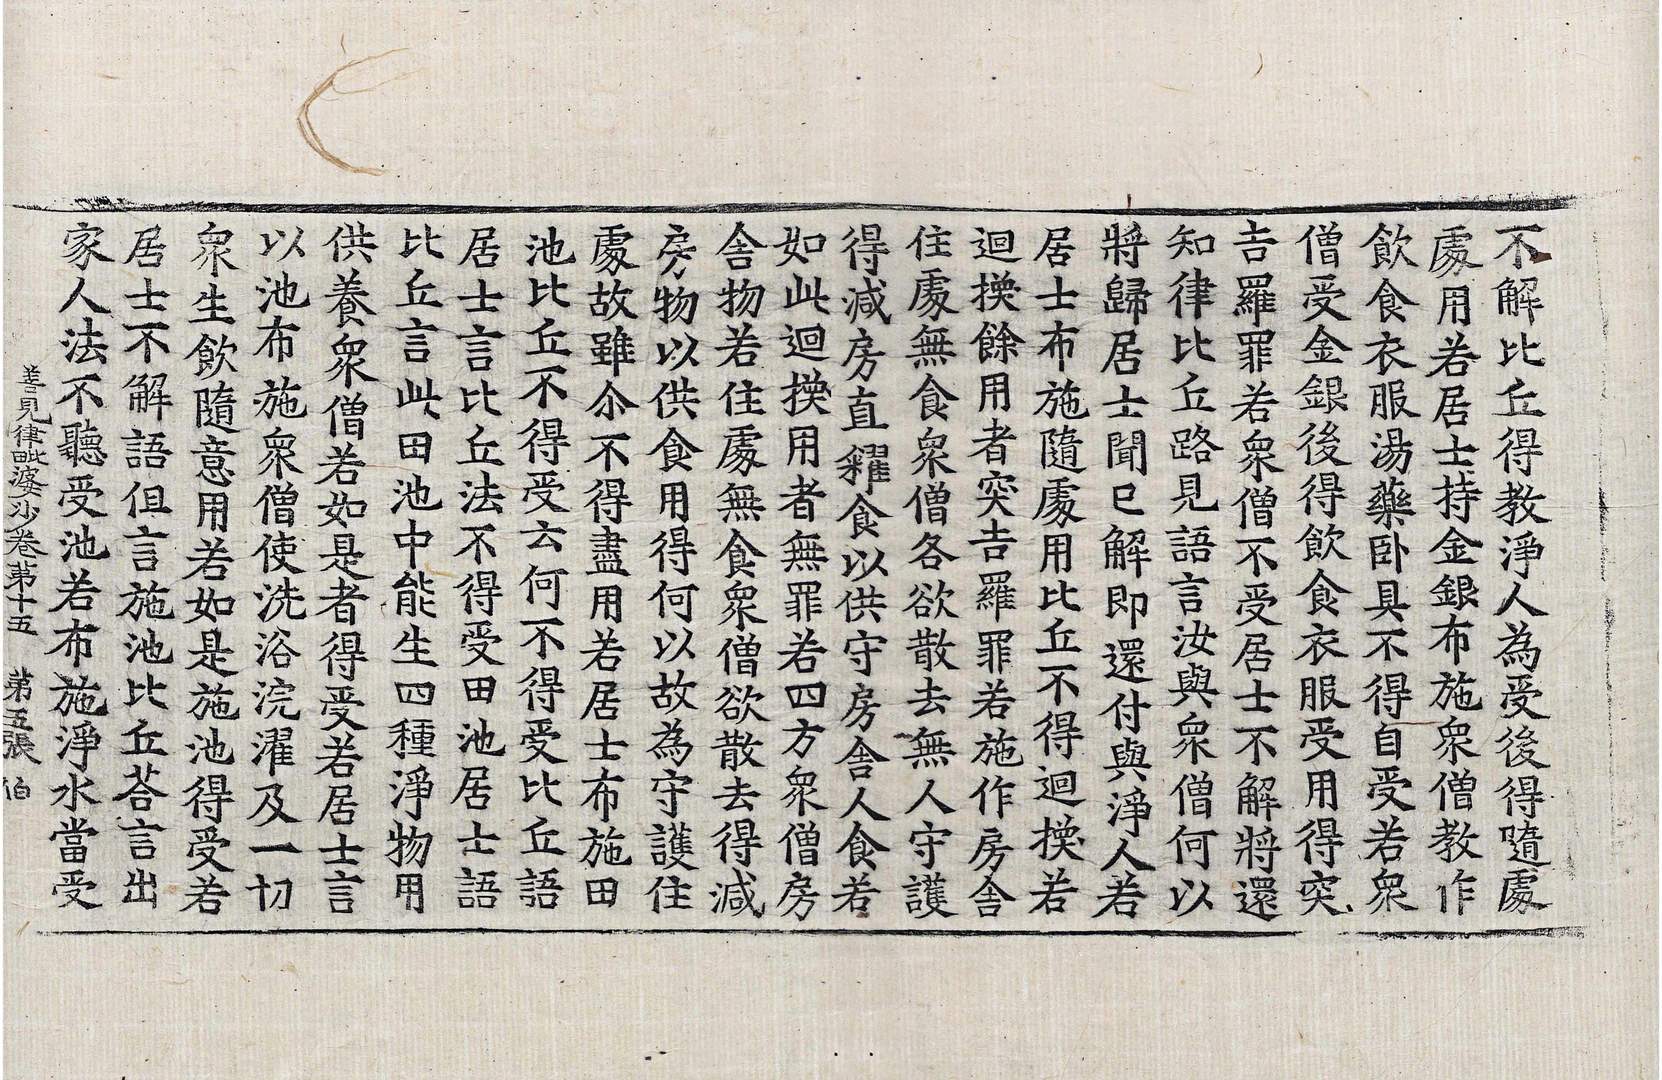 不解比丘得教淨人為受後得隨處
處用若居士持金銀布施衆僧教作
飲食衣服湯藥卧具不得自受若衆
僧受金銀後得飲食衣服受用得突
吉羅罪若衆僧不受居士不解將還
知律比丘路見語言汝與衆僧何以
將歸居士聞已解即還付與淨人若
居士布施隨處用比丘不得迴換若
迴換餘用者突吉羅罪若施作房舍
住處無食衆僧各欲散去無人守護
得減房直糴食以供守房舍人食若
如此迴換用者無罪若四方衆僧房
舍物若住處無食衆僧欲散去得減
房物以供食用得何以故為守護住
處故雖尒不得盡用若居士布施田
池比丘不得受云何不得受比丘語
居士言比丘法不得受田池居士語
比丘言此田池中能生四種淨物用
供養衆僧若如是者得受若居士言
以池布施衆僧使洗浴浣濯及一切
衆生飲隨意用若如是施池得受若
居士不解語但言施池比丘荅言出
家人法不聽受池若布施淨水當受
善見律毗婆沙卷第十五 第五張 伯